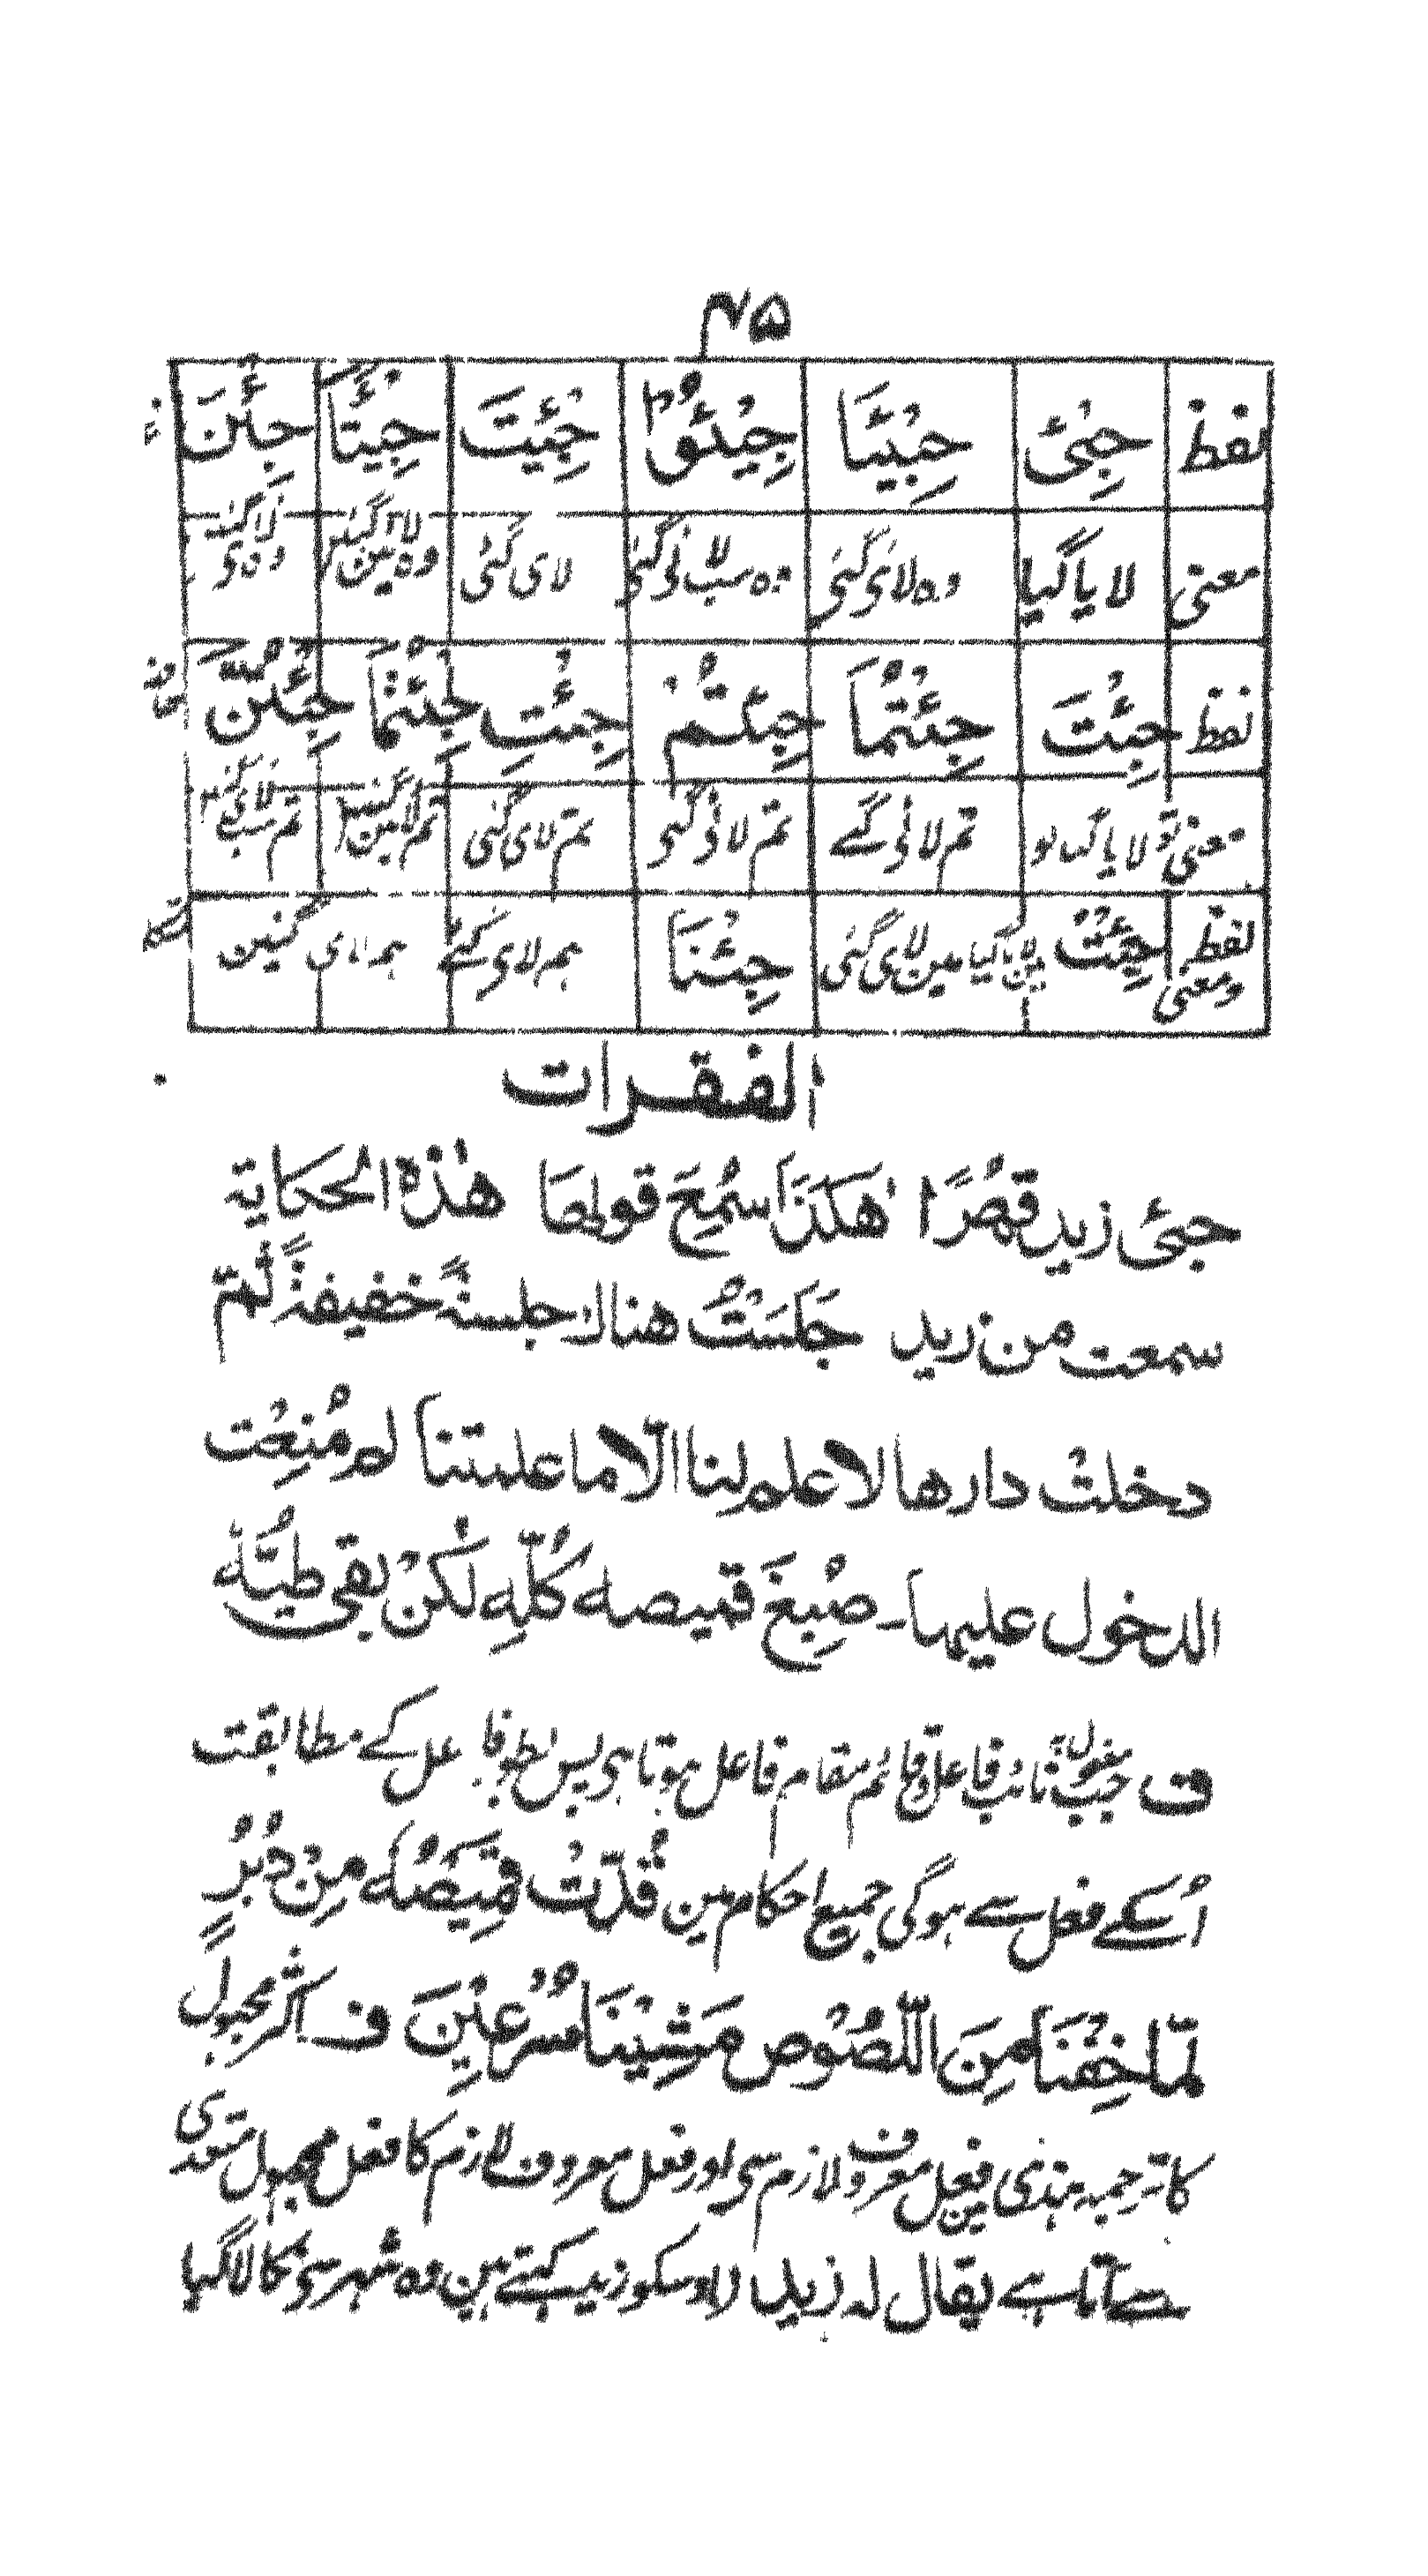 ۴۵
لفظ جِیْئَ جِیْئَا جِیْئُوْا جِیْئَتْ جِیْئَتَا جِئْنَ
معنی لا یا گیا وہ لای گئی وہ سب لای گئی لای گئی
لفظ جِئْتَ جِئْتُمَا جِئْتُمْ جِئْتِ جِئْتُمَا جِئْتُنَّ
معنی تو لا یا گیا تو تم لای گئے تم لای گئی تم لای گئی
لفظ ومعنی جِئْتُ مین لای گئی جِئْنَا ہم لای گئے ہم لای گئین
الفقرات
جیئ زید قصرًا هکذا سُمِعَ قولها هٰذہ الحکایة
سمعت من زید جَلَسْتُ هناك جلسةً خفیفةً ثم
دخلتُ دارها لا علم لنا الّا ما علمتنا لم مُنِعْت
الدخول علیها۔ صُبِغَ قمیصه کُلِّهِ لٰکنْ بقی طیُّه
ف جب مفعول نائب فاعل قائم مقام فاعل ہوتا ہی پس فاعل کے مطابقت
اُسکے فعل سے ہوگی جمیع احکام مین قُدَّتْ قَمِیْصُهٗ مِنْ دُبُرٍ
لمّا خِفْنَا مِنَ اللُّصُوْص مَشَیْنَا مُسْرِعِیْنَ ف اکثر مجہول
کا ترجمہ ہندی مین فعل معروف لازم سی اور فعل معروف لازم کا فعل مجہول متعدی
سے آتا ہے یقال له زید لاو سکو زید کہتے ہین وہ شہر سی نکالا گیا